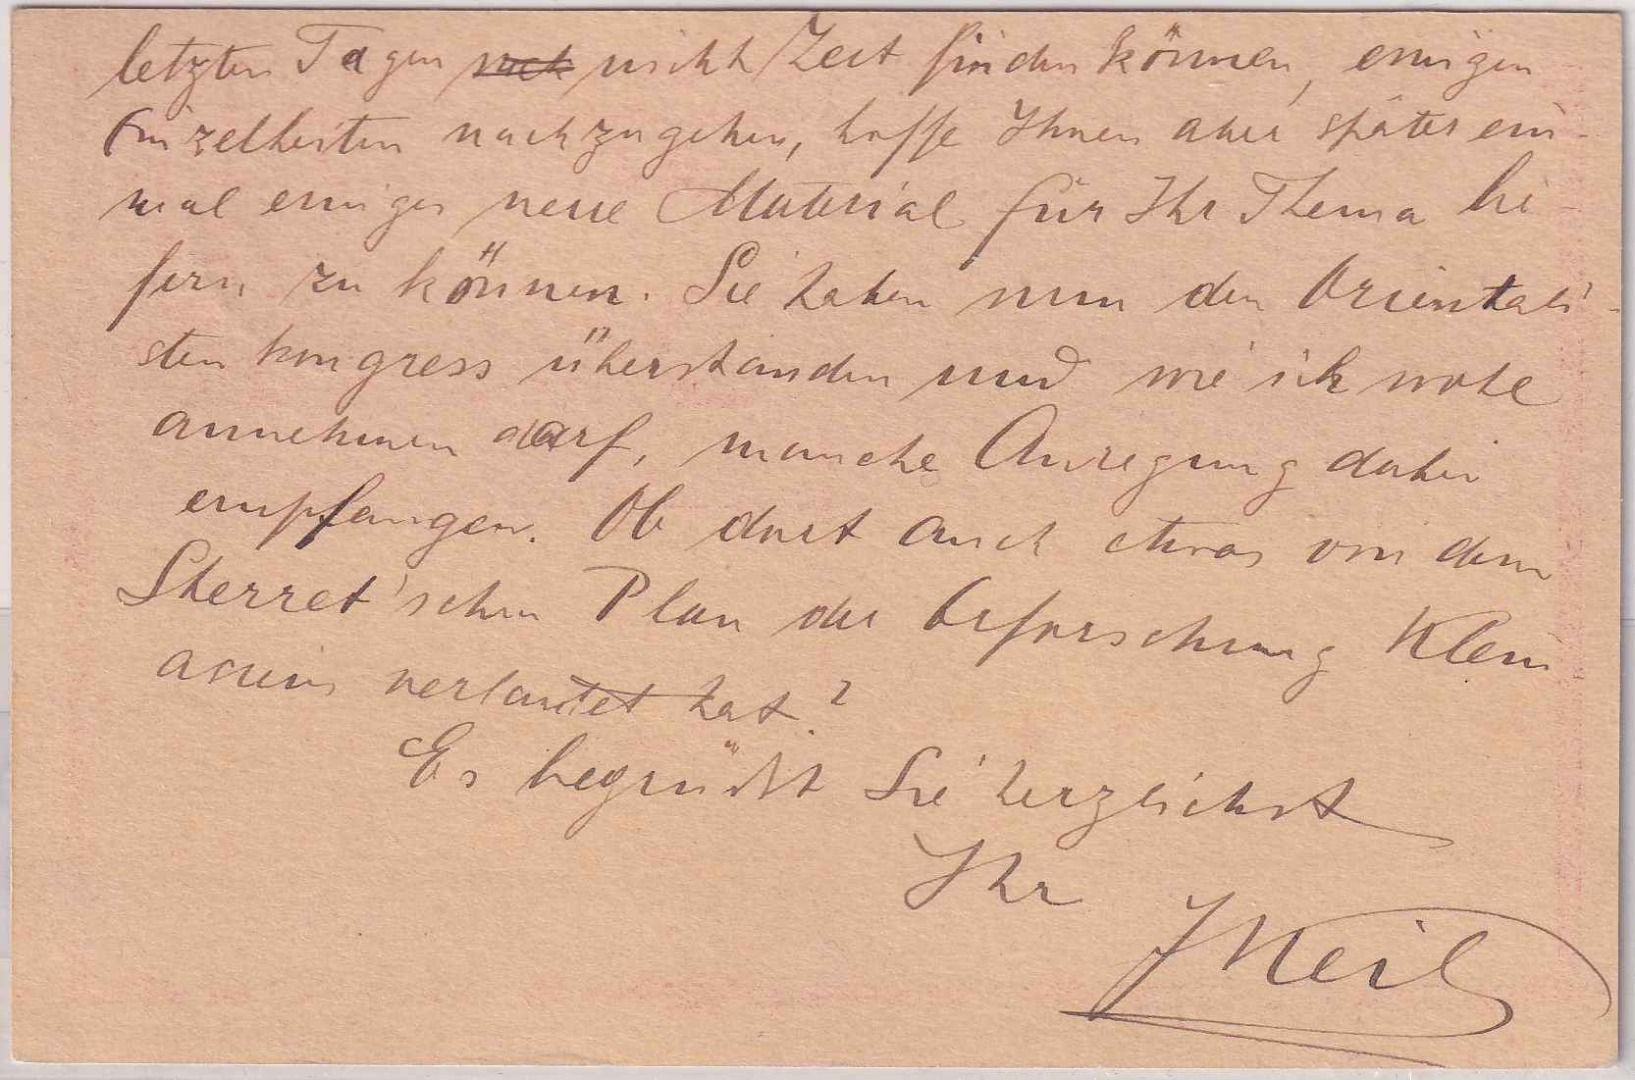 letzten Tagen nicht Zeit finden können, einigen
Einzelheiten nachzugehen, hoffe Ihnen aber später ein-
mal einiges neue Material für Ihr Thema lie-
fern zu können. Sie haben nun den Orientali-
stenkongress überstanden und wie ich wohl
annehmen darf, manche Anregung dabei
empfangen. Ob dort auch etwas von dem
Sterret'schen Plan der Erforschung Klein
asiens verlautet hat?
Es begrüßt Sie herzlichst
Ihr
JKeil